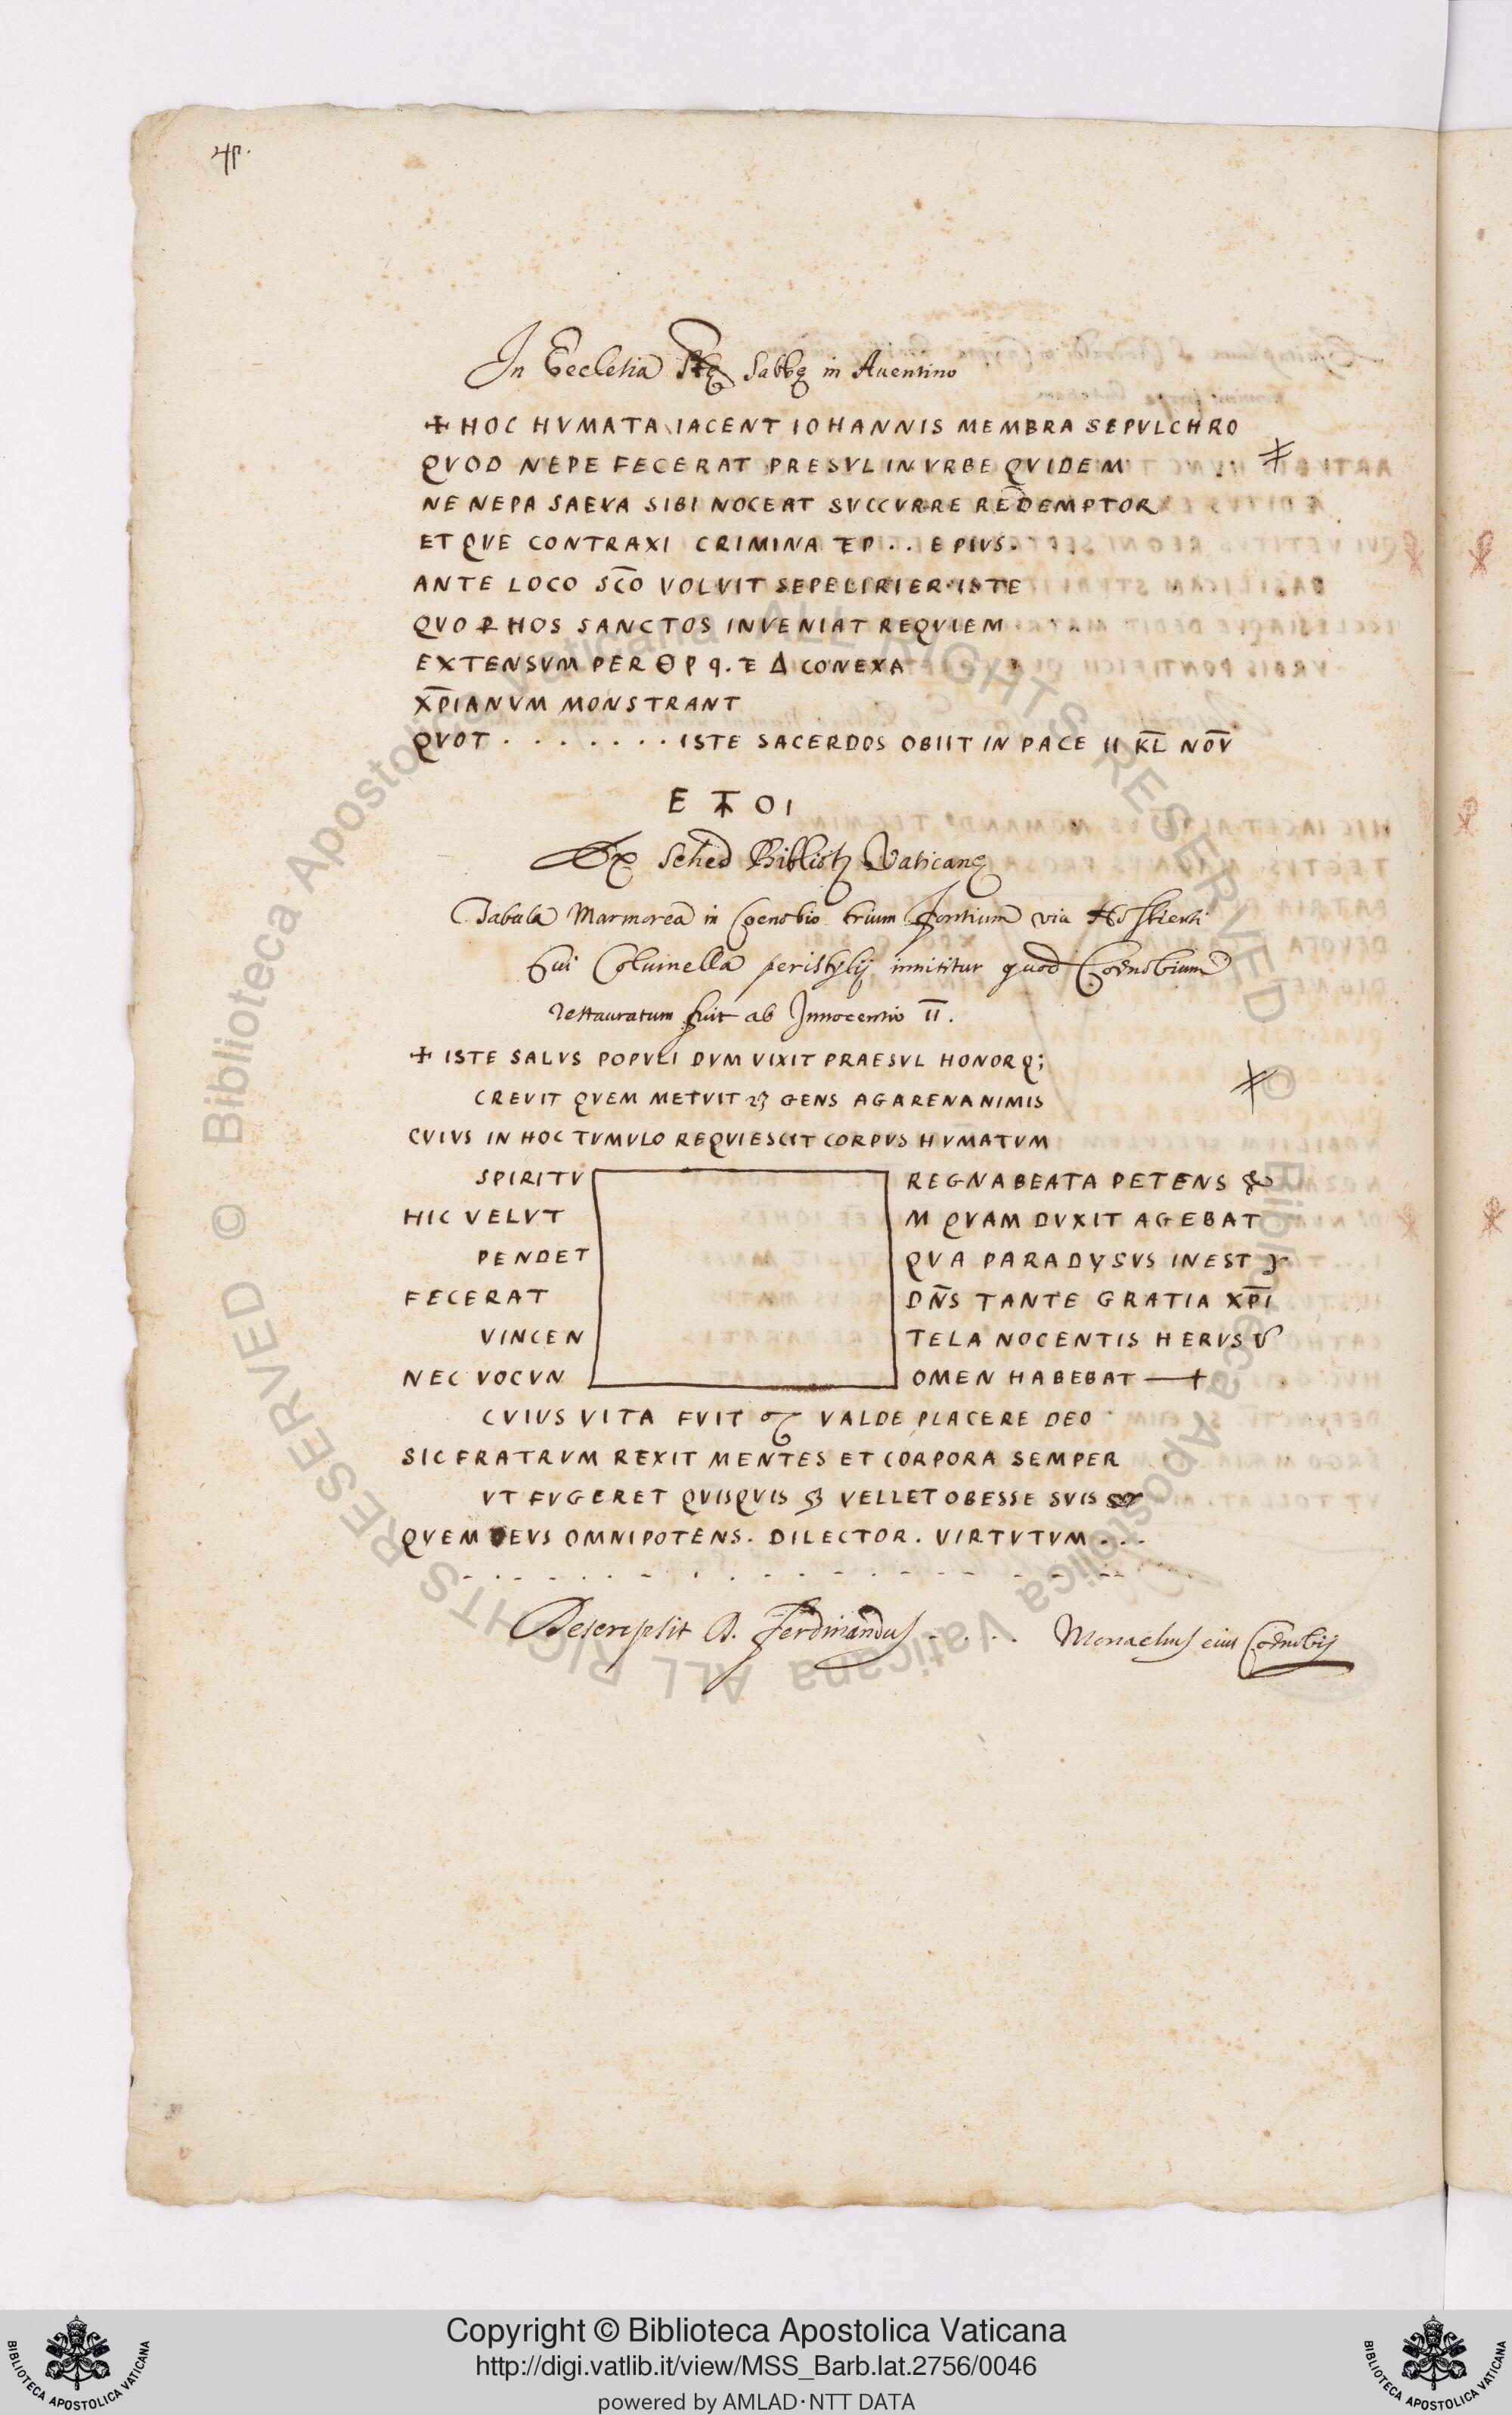 In Ecclesia Stę Sabbę in Auentino
✠ HOC HVMATA IACENT IOHANNIS MEMBRA SEPVLCHRO
QVOD NEPE FECERAT PRESVL IN VRBE QVIDEM
NE NEPA SAEVA SIBI NOCEAT SVCCVRRE REDEMPTOR
ET QVE CONTRAXI CRIMINA TP . . E PIVS.
ANTE LOCO SC̅O VOLVIT SEPELIRIER ISTE
QVO HOS SANCTOS INVENIAT REQVIEM
EXTENSVM PER Θ P q. E Δ CONEXA
XP̅IANVM MONSTRANT
QVOT . . . . . . . . ISTE SACERDOS OBIIT IN PACE II KL̅ NOV̅
E OI
Ex Sched Bibliotę Vaticanę
Tabula Marmorea in Coenobio trium Fontium via Hostiensi
Cui Columella peristylij innititur quod Coenobium
restauratum fuit ab Innocentio II.
✠ ISTE SALVS POPVLI DVM VIXIT PRAESVL HONORQ;
CREVIT QVEM METVIT GENS AGARENA NIMIS
CVIVS IN HOC TVMVLO REQVIESCIT CORPVS HVMATVM
SPIRITV REGNA BEATA PETENS
HIC VELVT M QVAM DVXIT AGEBAT
PENDET QVA PARADYSVS INEST
FECERAT DN̅S TANTE GRATIA XP̅I
VINCEN TELA NOCENTIS HERVS
NEC VOCVN OMEN HABEBAT
CVIVS VITA FVIT VALDE PLACERE DEO
SIC FRATRVM REXIT MENTES ET CORPORA SEMPER
VT FVGERET QVISQVIS VELLET OBESSE SVIS
QVEM DEVS OMNIPOTENS. DILECTOR. VIRTVTVM . . .
Descripsit D. Ferdinandus . . . . Monachus eius Coenobij
Copyright © Biblioteca Apostolica Vaticana
http://digi.vatlib.it/view/MSS_Barb.lat.2756/0046
powered by AMLAD·NTT DATA
BIBLIOTECA APOSTOLICA VATICANA
BIBLIOTECA APOSTOLICA VATICANA
© Biblioteca Apostolica Vaticana ALL RIGHTS RESERVED
© Biblioteca Apostolica Vaticana ALL RIGHTS RESERVED